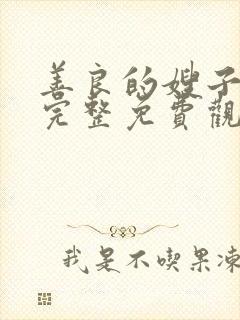 善良的嫂子
完整免費觀
我是不喫果凍